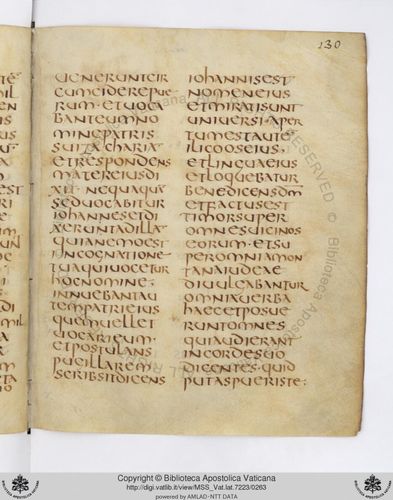 130
UENERUNTCIR
CUMCIDEREPUE
RUM·ETUOCA
BANTEUMNO
MINEPATRIS
SUIZACHARIA
ETRESPONDENS
MATEREIUSDI
XIT·NEQUAQUA
SEDUOCABITUR
IOHANNESETDI
XERUNTADILLA
QUIANEMOEST
INCOGNATIONE
TUAQUIUOCETUR
HOCNOMINE·
INNUEBANTAU
TEMPATRIEIUS
QUEMUELLET
UOCARIEUM·
ETPOSTULANS
PUGILLAREM
SCRIBSITDICENS
IOHANNISEST
NOMENEIUS
ETMIRATISUNT
UNIUERSI·APER
TUMESTAUTE
ILICOOSEIUS·
ETLINGUAEIUS
ETLOQUEBATUR
BENEDICENSDM
ETFACTUSEST
TIMORSUPER
OMNESUICINOS
EORUM·ETSU
PEROMNIAMON
TANAIUDEAE
DIUULGABANTUR
OMNIAUERBA
HAECETPOSUE
RUNTOMNES
QUIAUDIERANT
INCORDESUO
DICENTES·QUID
PUTASPUERISTE:
Copyright © Biblioteca Apostolica Vaticana
http://digi.vatlib.it/view/MSS_Vat.lat.7223/0263
powered by AMLAD-NTT DATA